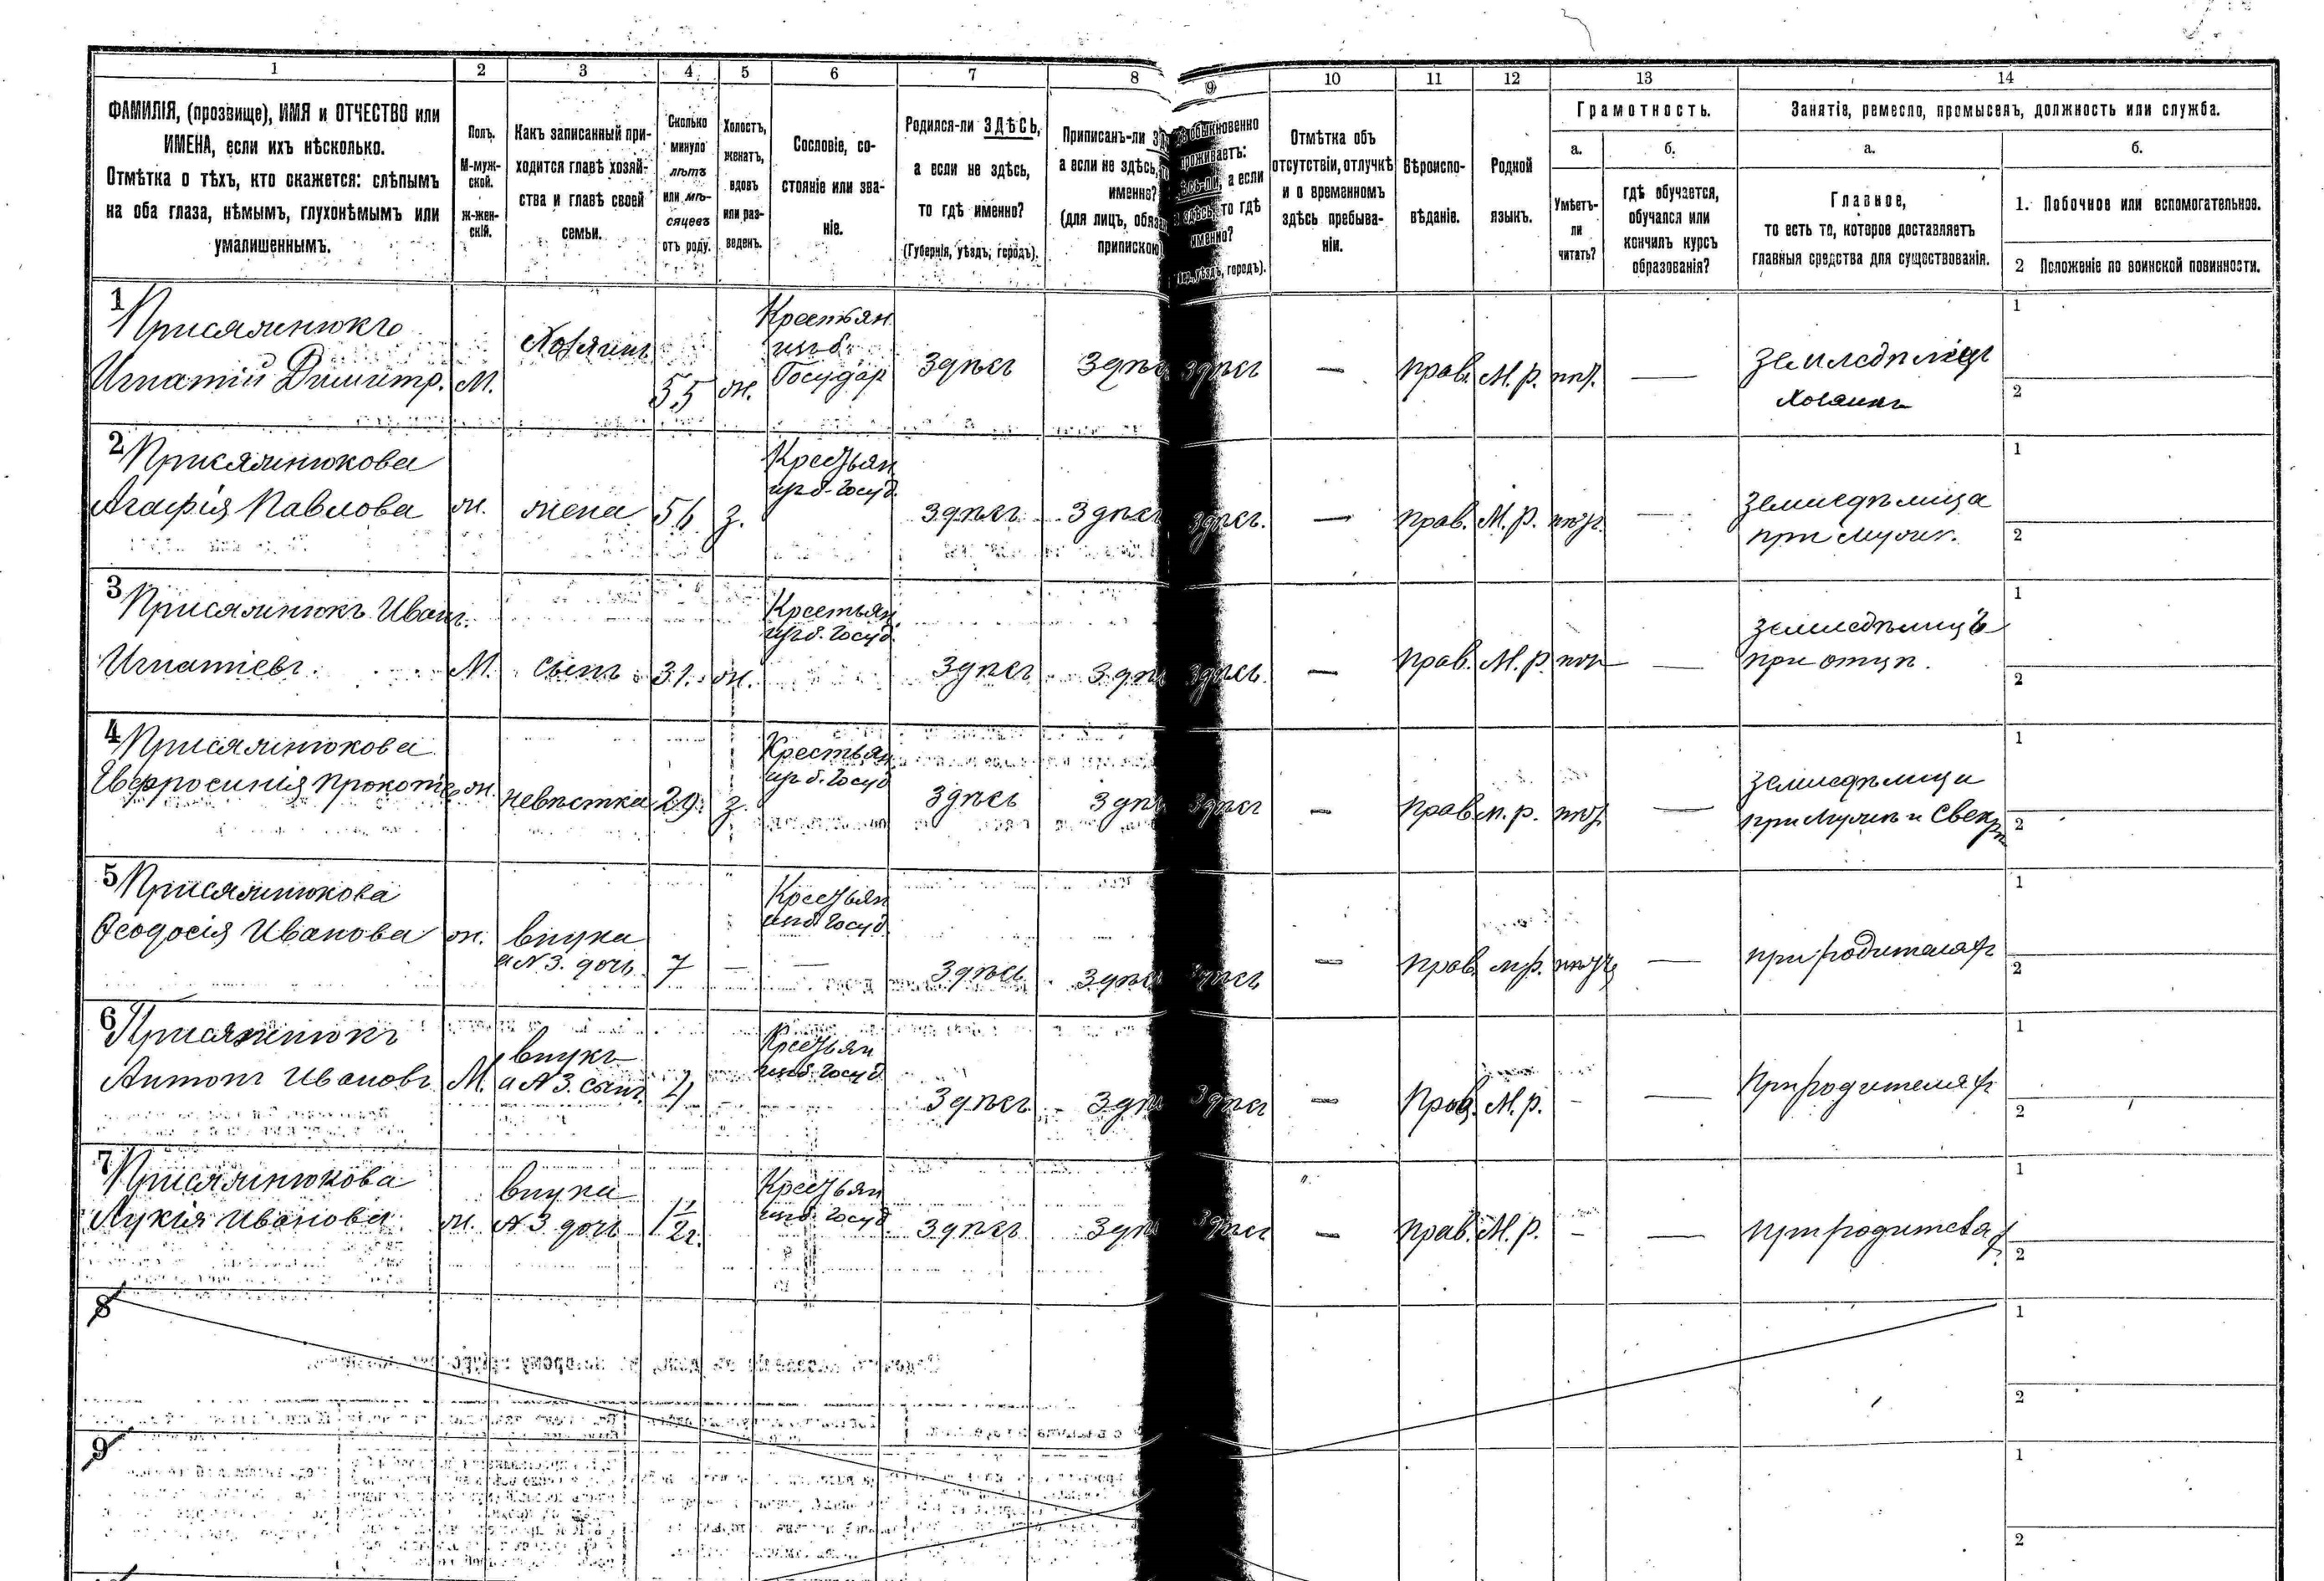 1 2 3 4 5 6 7 8 9 10 11 12 13 14
ФАМИЛІЯ, (прозвище), ИМЯ и ОТЧЕСТВО или
ИМЕНА, если ихъ нѣсколько.
Отмѣтка о тѣхъ, кто окажется: слѣпымъ
на оба глаза, нѣмымъ, глухонѣмымъ или
умалишеннымъ.
Полъ.
М-муж-
ской.
ж-жен-
скій.
Какъ записанный при-
ходится главѣ хозяй-
ства и главѣ своей
семьи.
Сколько
минуло
лѣтъ
или мѣ-
сяцевъ
отъ роду.
Холостъ,
женатъ,
вдовъ
или раз-
веденъ.
Сословіе, со-
стояніе или зва-
ніе.
Родился-ли ЗДѢСЬ,
а если не здѣсь,
то гдѣ именно?
(Губернія, уѣздъ, городъ).
Приписанъ-ли
а если не здѣсь,
именно?
(для лицъ,
припискою
обыкновенно
проживаетъ:
а если
то гдѣ
именно?
уѣздъ, городъ).
Отмѣтка объ
отсутствіи, отлучкѣ
и о временномъ
здѣсь пребыва-
ніи.
Вѣроиспо-
вѣданіе.
Родной
языкъ.
Грамотность.
а.
Умѣетъ-
ли
читать?
б.
гдѣ обучается,
обучался или
кончилъ курсъ
образованія?
Занятіе, ремесло, промыселъ, должность или служба.
а.
Главное,
то есть то, которое доставляетъ
главныя средства для существованія.
б.
1. Побочное или вспомогательное.
2 Положеніе по воинской повинности.
1 Присяжнюкъ
Игнатій Димитр. М. Хозяинъ 55 ж. Крестьян
изъ б.
Государ здѣсь здѣсь здѣсь — прав. М. р. — земледѣлецъ
Хозяинъ
1
2
2 Присяжнюкова
Агафія Павлова ж. жена 56 з. Крестьян
изъ б. Госуд. здѣсь здѣсь здѣсь. — прав. М. р. — земледѣлица
при мужѣ.
1
2
3 Присяжнюкъ Иванъ
Игнатіевъ. М. сынъ 31. ж. Крестьян
изъ б. Госуд. здѣсь здѣсь здѣсь. — прав. М. р. — земледѣлицъ
при отцѣ.
1
2
4 Присяжнюкова
Евфросинія Прокопіе ж. невѣстка 29. з. Крестьян
изъ б. Госуд здѣсь здѣсь здѣсь — прав. м. р. — земледѣлица
при мужѣ и Свекрѣ
1
2
5 Присяжнюкова
Ѳеодосія Иванова ж. внука
а №3. дочь 7 — — Крестьян
изъ б. Госуд здѣсь здѣсь здѣсь — прав. м. р. — при родителяхъ
1
2
6 Присяжнюкъ
Антонъ Ивановъ М. внукъ
а №3. сынъ 4 Крестьян
изъ б. Госуд здѣсь здѣсь здѣсь — Прав. М. р. — — При родителяхъ
1
2
7 Присяжнюкова
Лукія Иванова ж. внука
№3 дочь 1 1/2 г. Крестьян
изъ б. Госуд здѣсь здѣсь здѣсь — прав. М. р. — — при родителяхъ
1
2
8
1
2
9
1
2